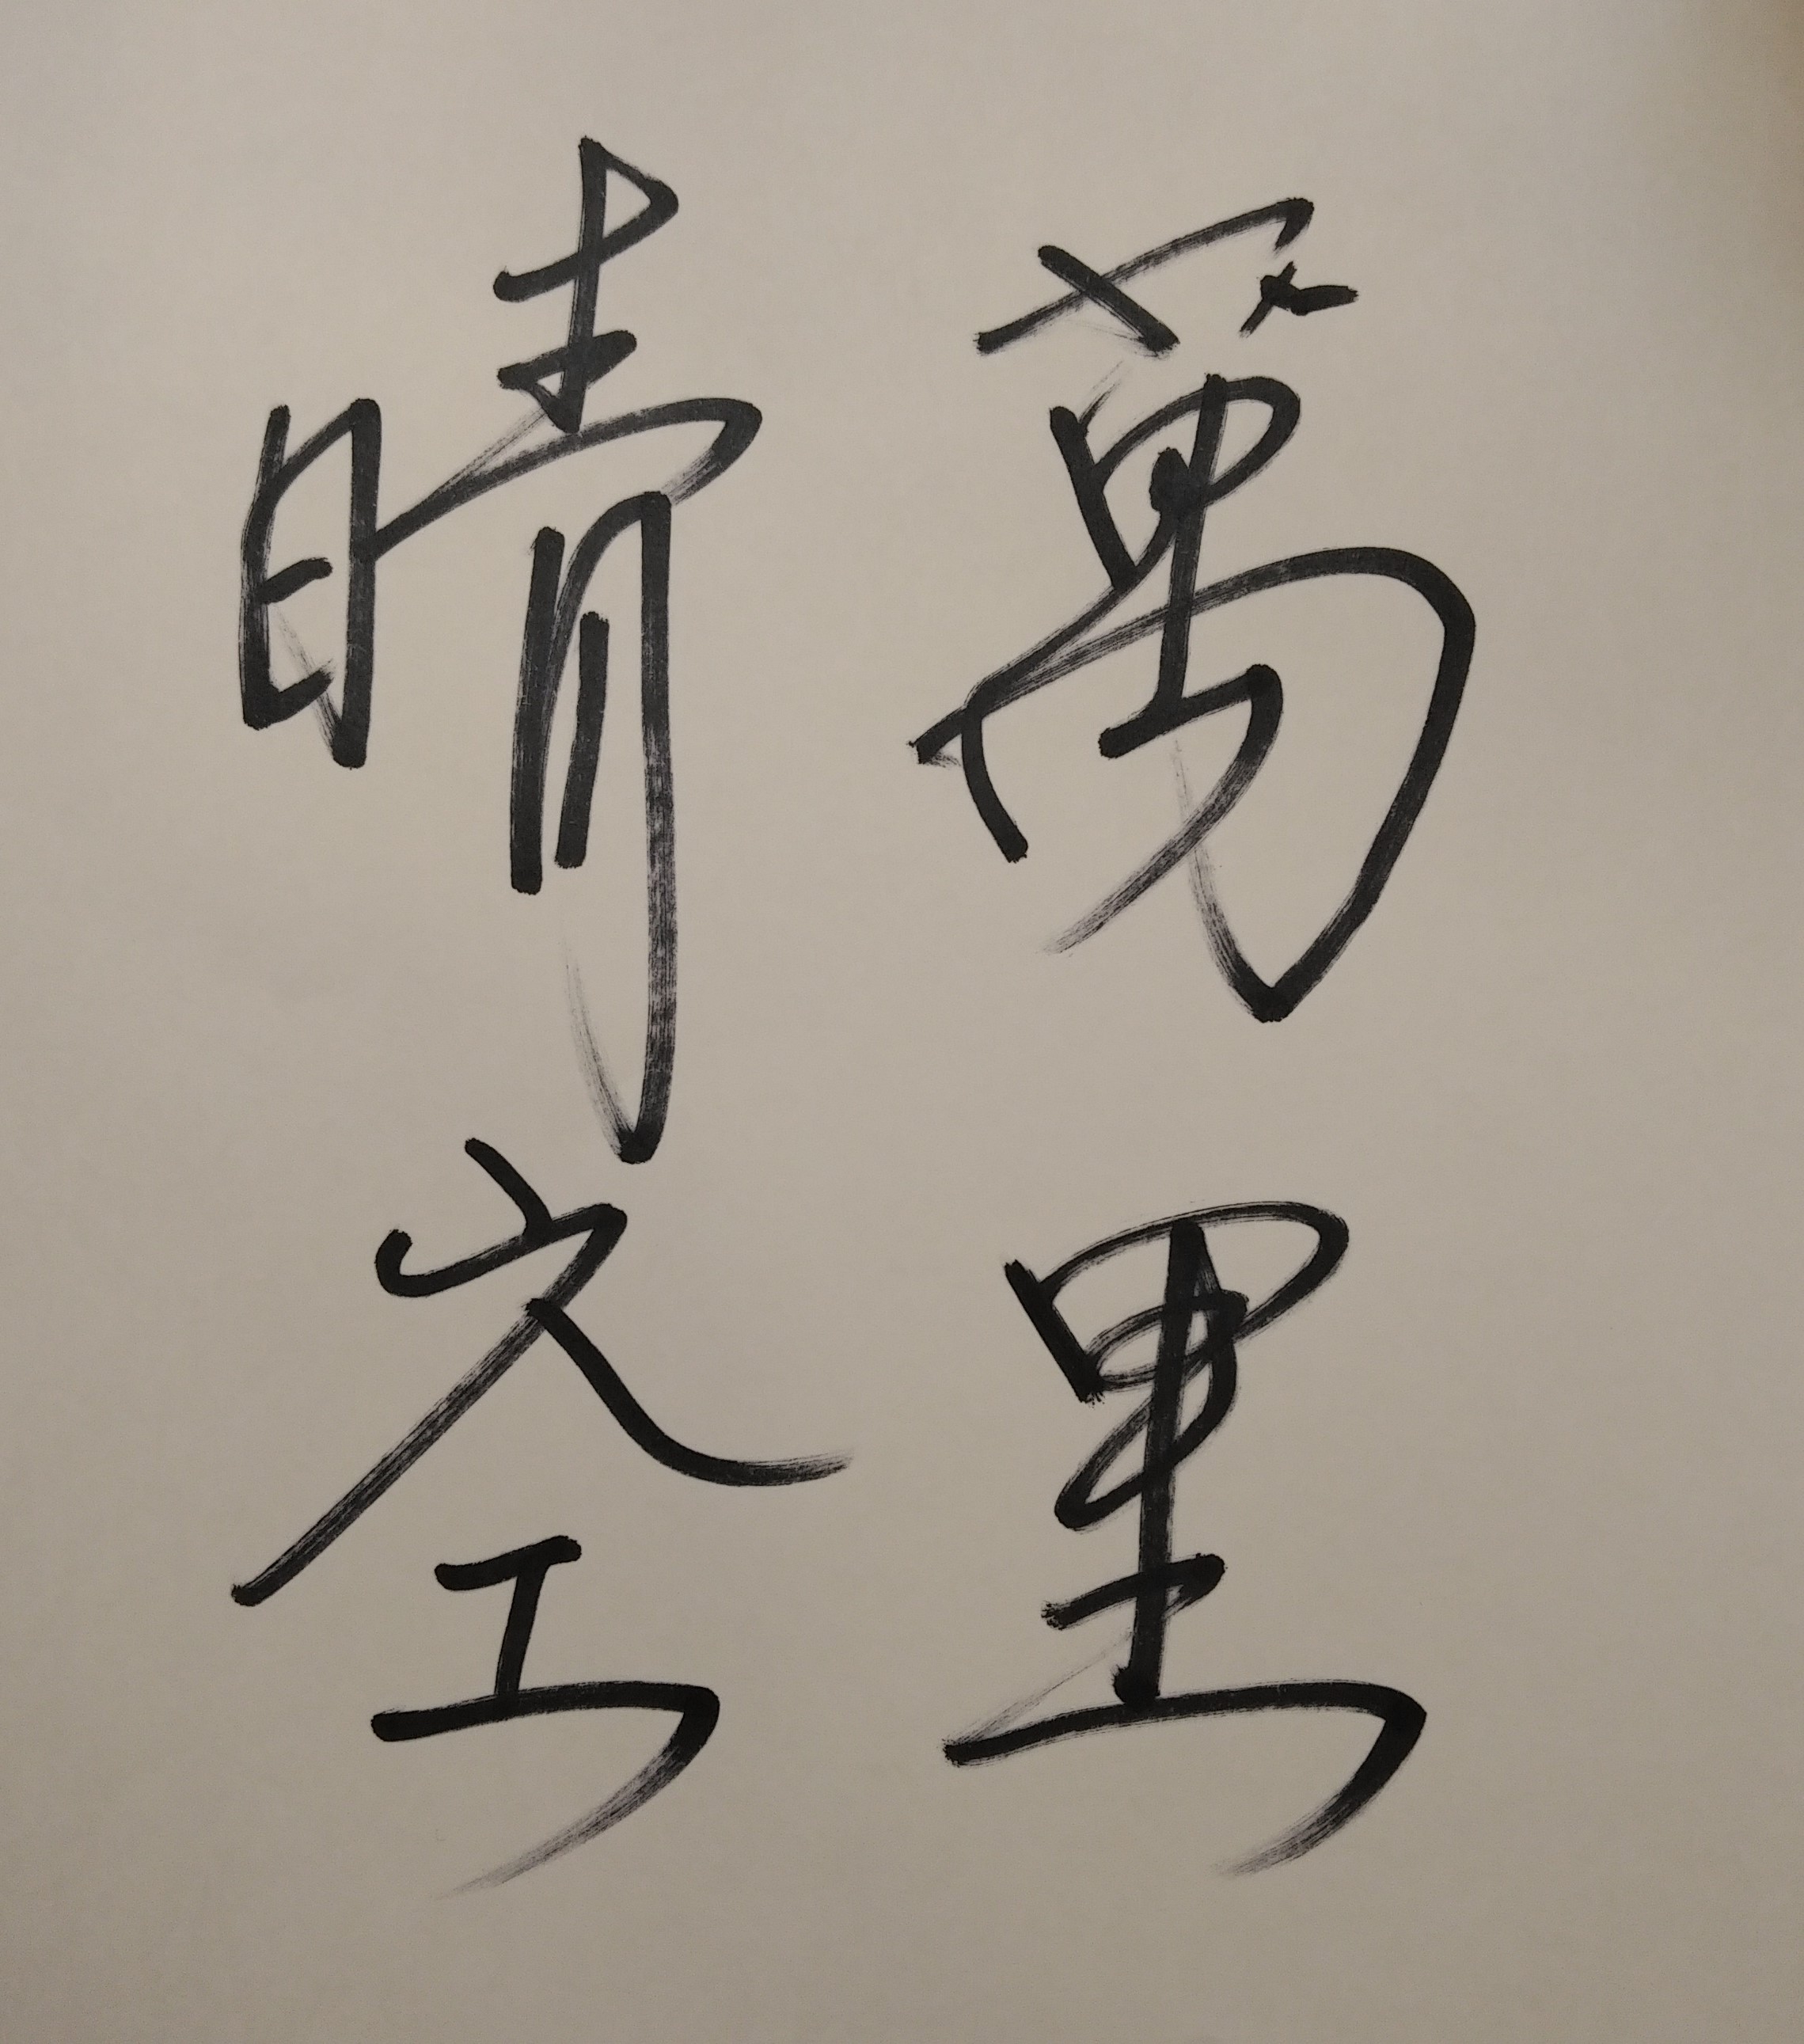 萬里
晴空